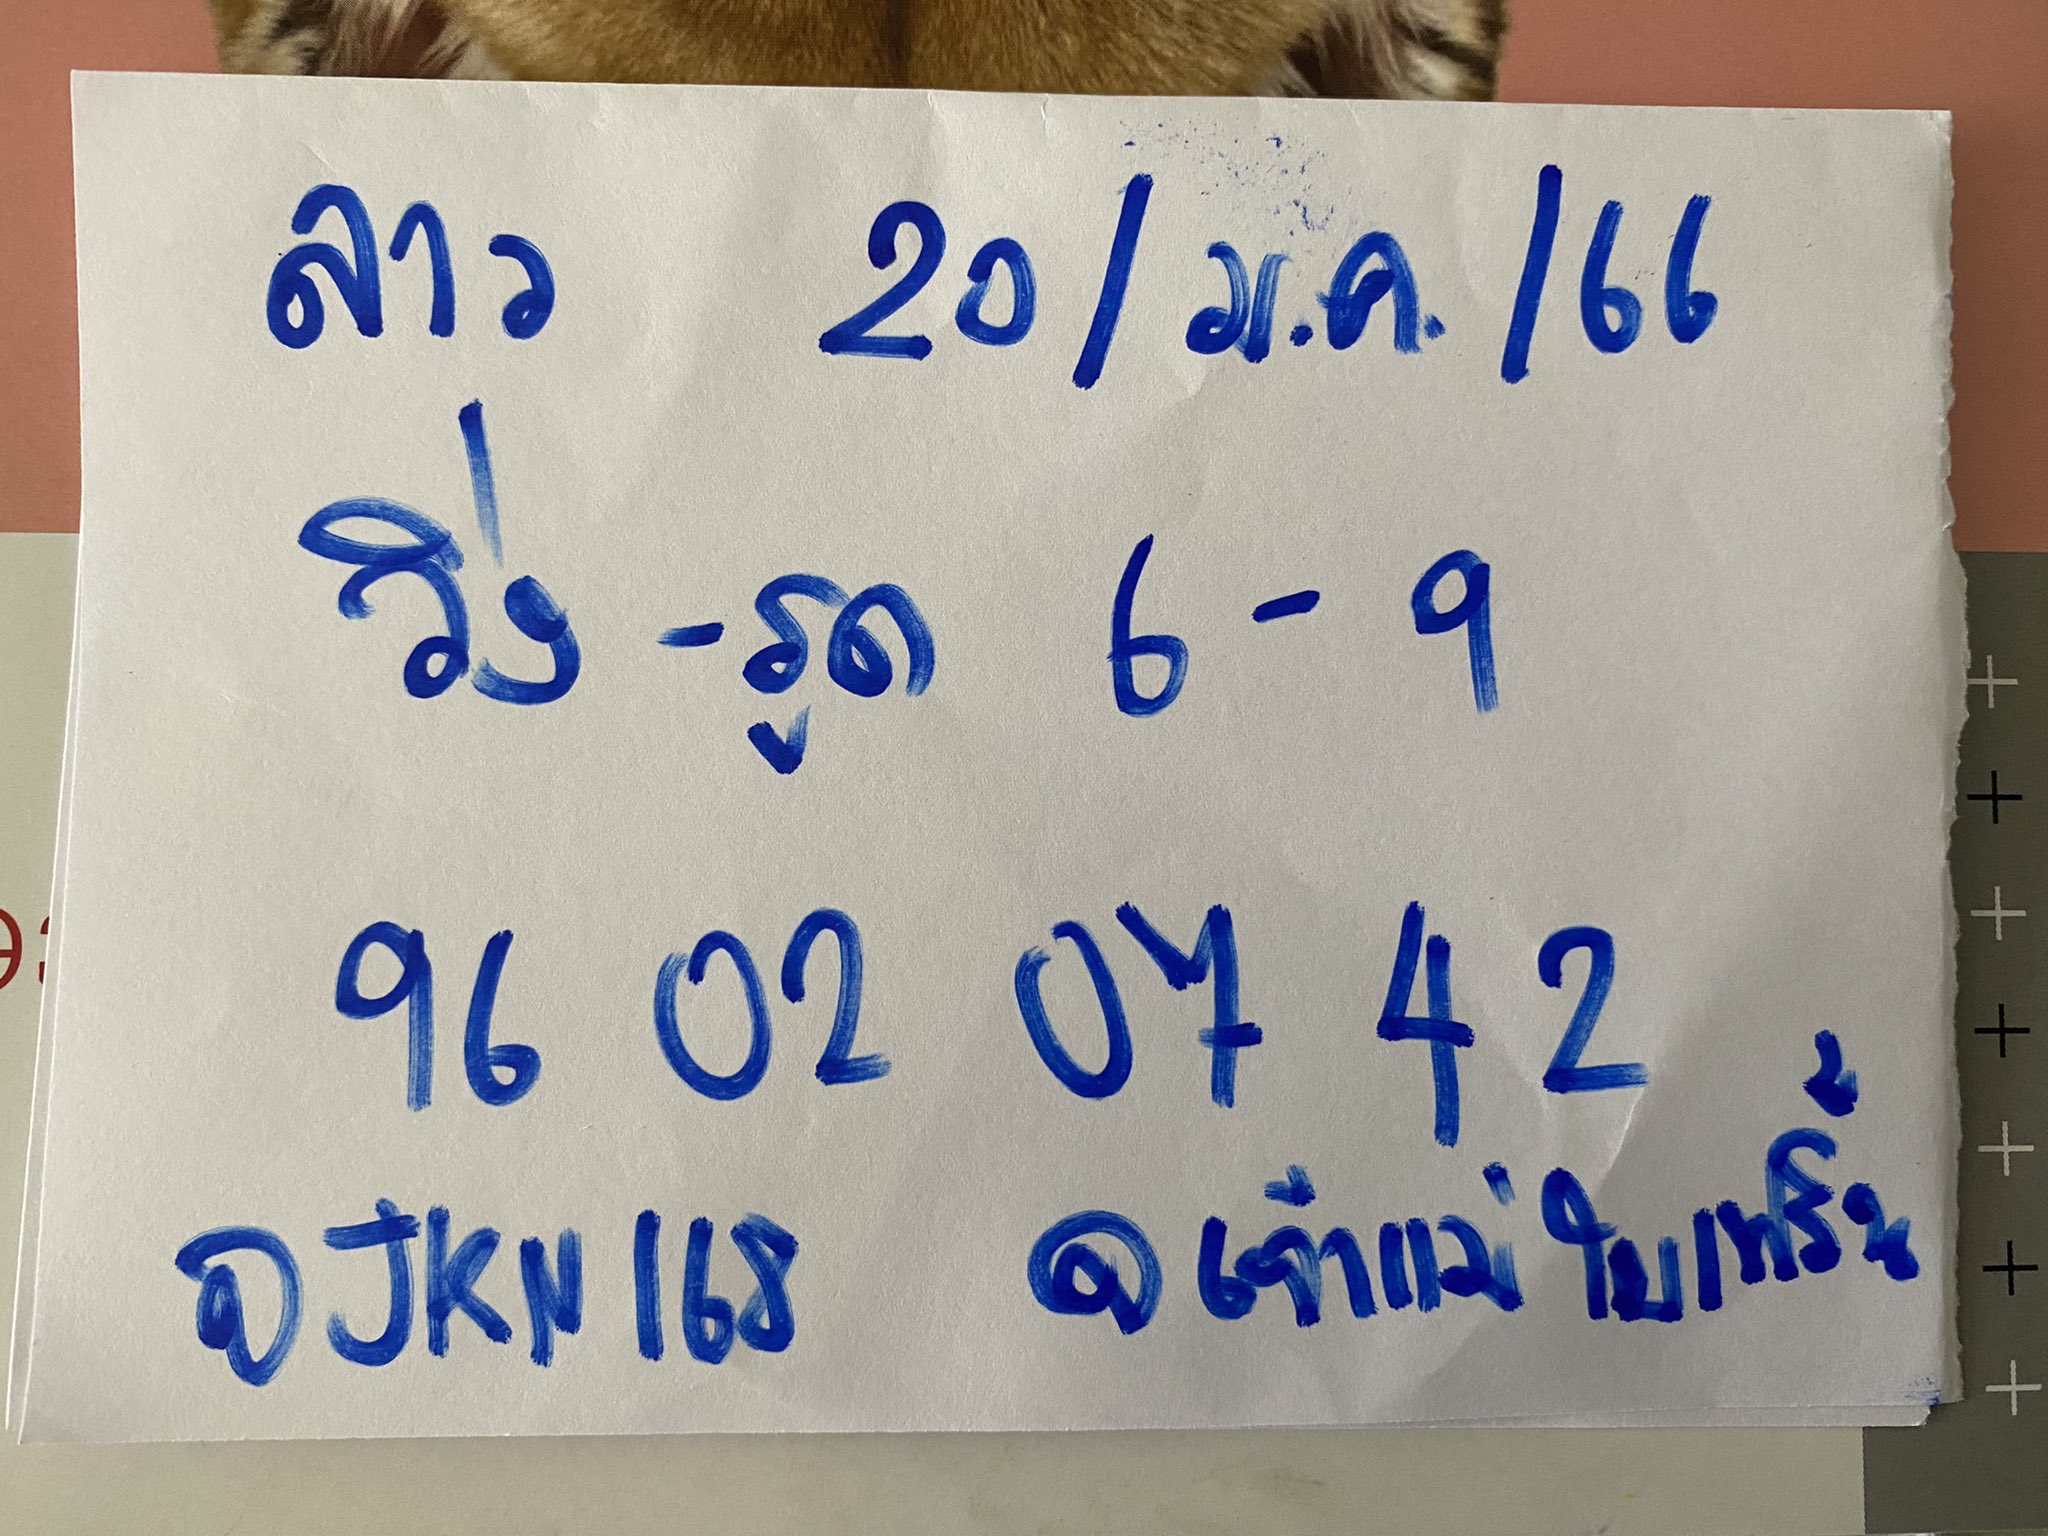 ลาว 20/ม.ค./66
วิ่ง - รูด 6 - 9
96 02 07 42
@JKN168 @เจ้าแม่ใบเหริ้น